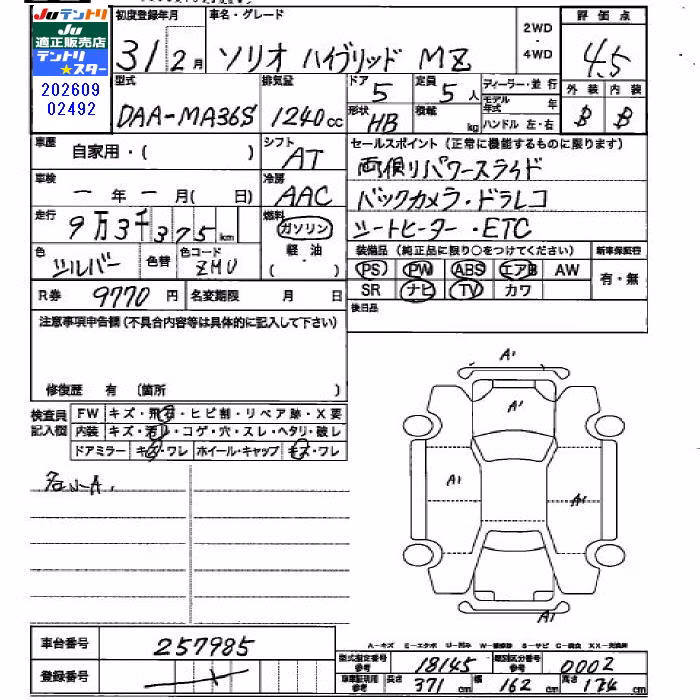 Juテントリ
Ju
適正販売店
テントリ
★スター
202609
02492
初度登録年月 車名・グレード 2WD・4WD 評価点
31 2月 ソリオ ハイブリッド MZ 4.5
型式 排気量 ドア 定員 ディーラー・並行 外装 内装
DAA-MA36S 1240cc 5 5人 モデル年式 年 B B
形状 HB 積載 kg ハンドル 左・右
車歴 自家用・( ) シフト AT セールスポイント(正常に機能するものに限ります)
両側リパワースライド
車検 一年一月(日) 冷房 AAC バックカメラ・ドラレコ
走行 9万3千375km 燃料 ガソリン シートヒーター・ETC
軽油
・( )
色 シルバー 色替 色コード ZMU
装備品(純正品に限り○をつけてください) 新車保証書
PS PW ABS エアB AW 有・無
SR ナビ TV カワ
R券 9770円 名変期限 月 日 後日品
注意事項申告欄(不具合内容等は具体的に記入して下さい)
修復歴 有 (箇所 )
検査員記入欄
FW キズ・飛石・ヒビ割・リペア跡・X要
内装 キズ・汚れ・コゲ・穴・スレ・ヘタリ・破レ
ドアミラー キズ・ワレ ホイール・キャップ キズ・ワレ
A1
A1
A1
A1
A1
車台番号 257985
A-キズ E-エクボ U-凹み W-補修跡 S-サビ C-腐食 XX-交換済
型式指定番号 参考 18145 類別区分番号 参考 0002
登録番号
車庫証明用 参考 長さ 371cm 幅 162cm 高さ 174cm